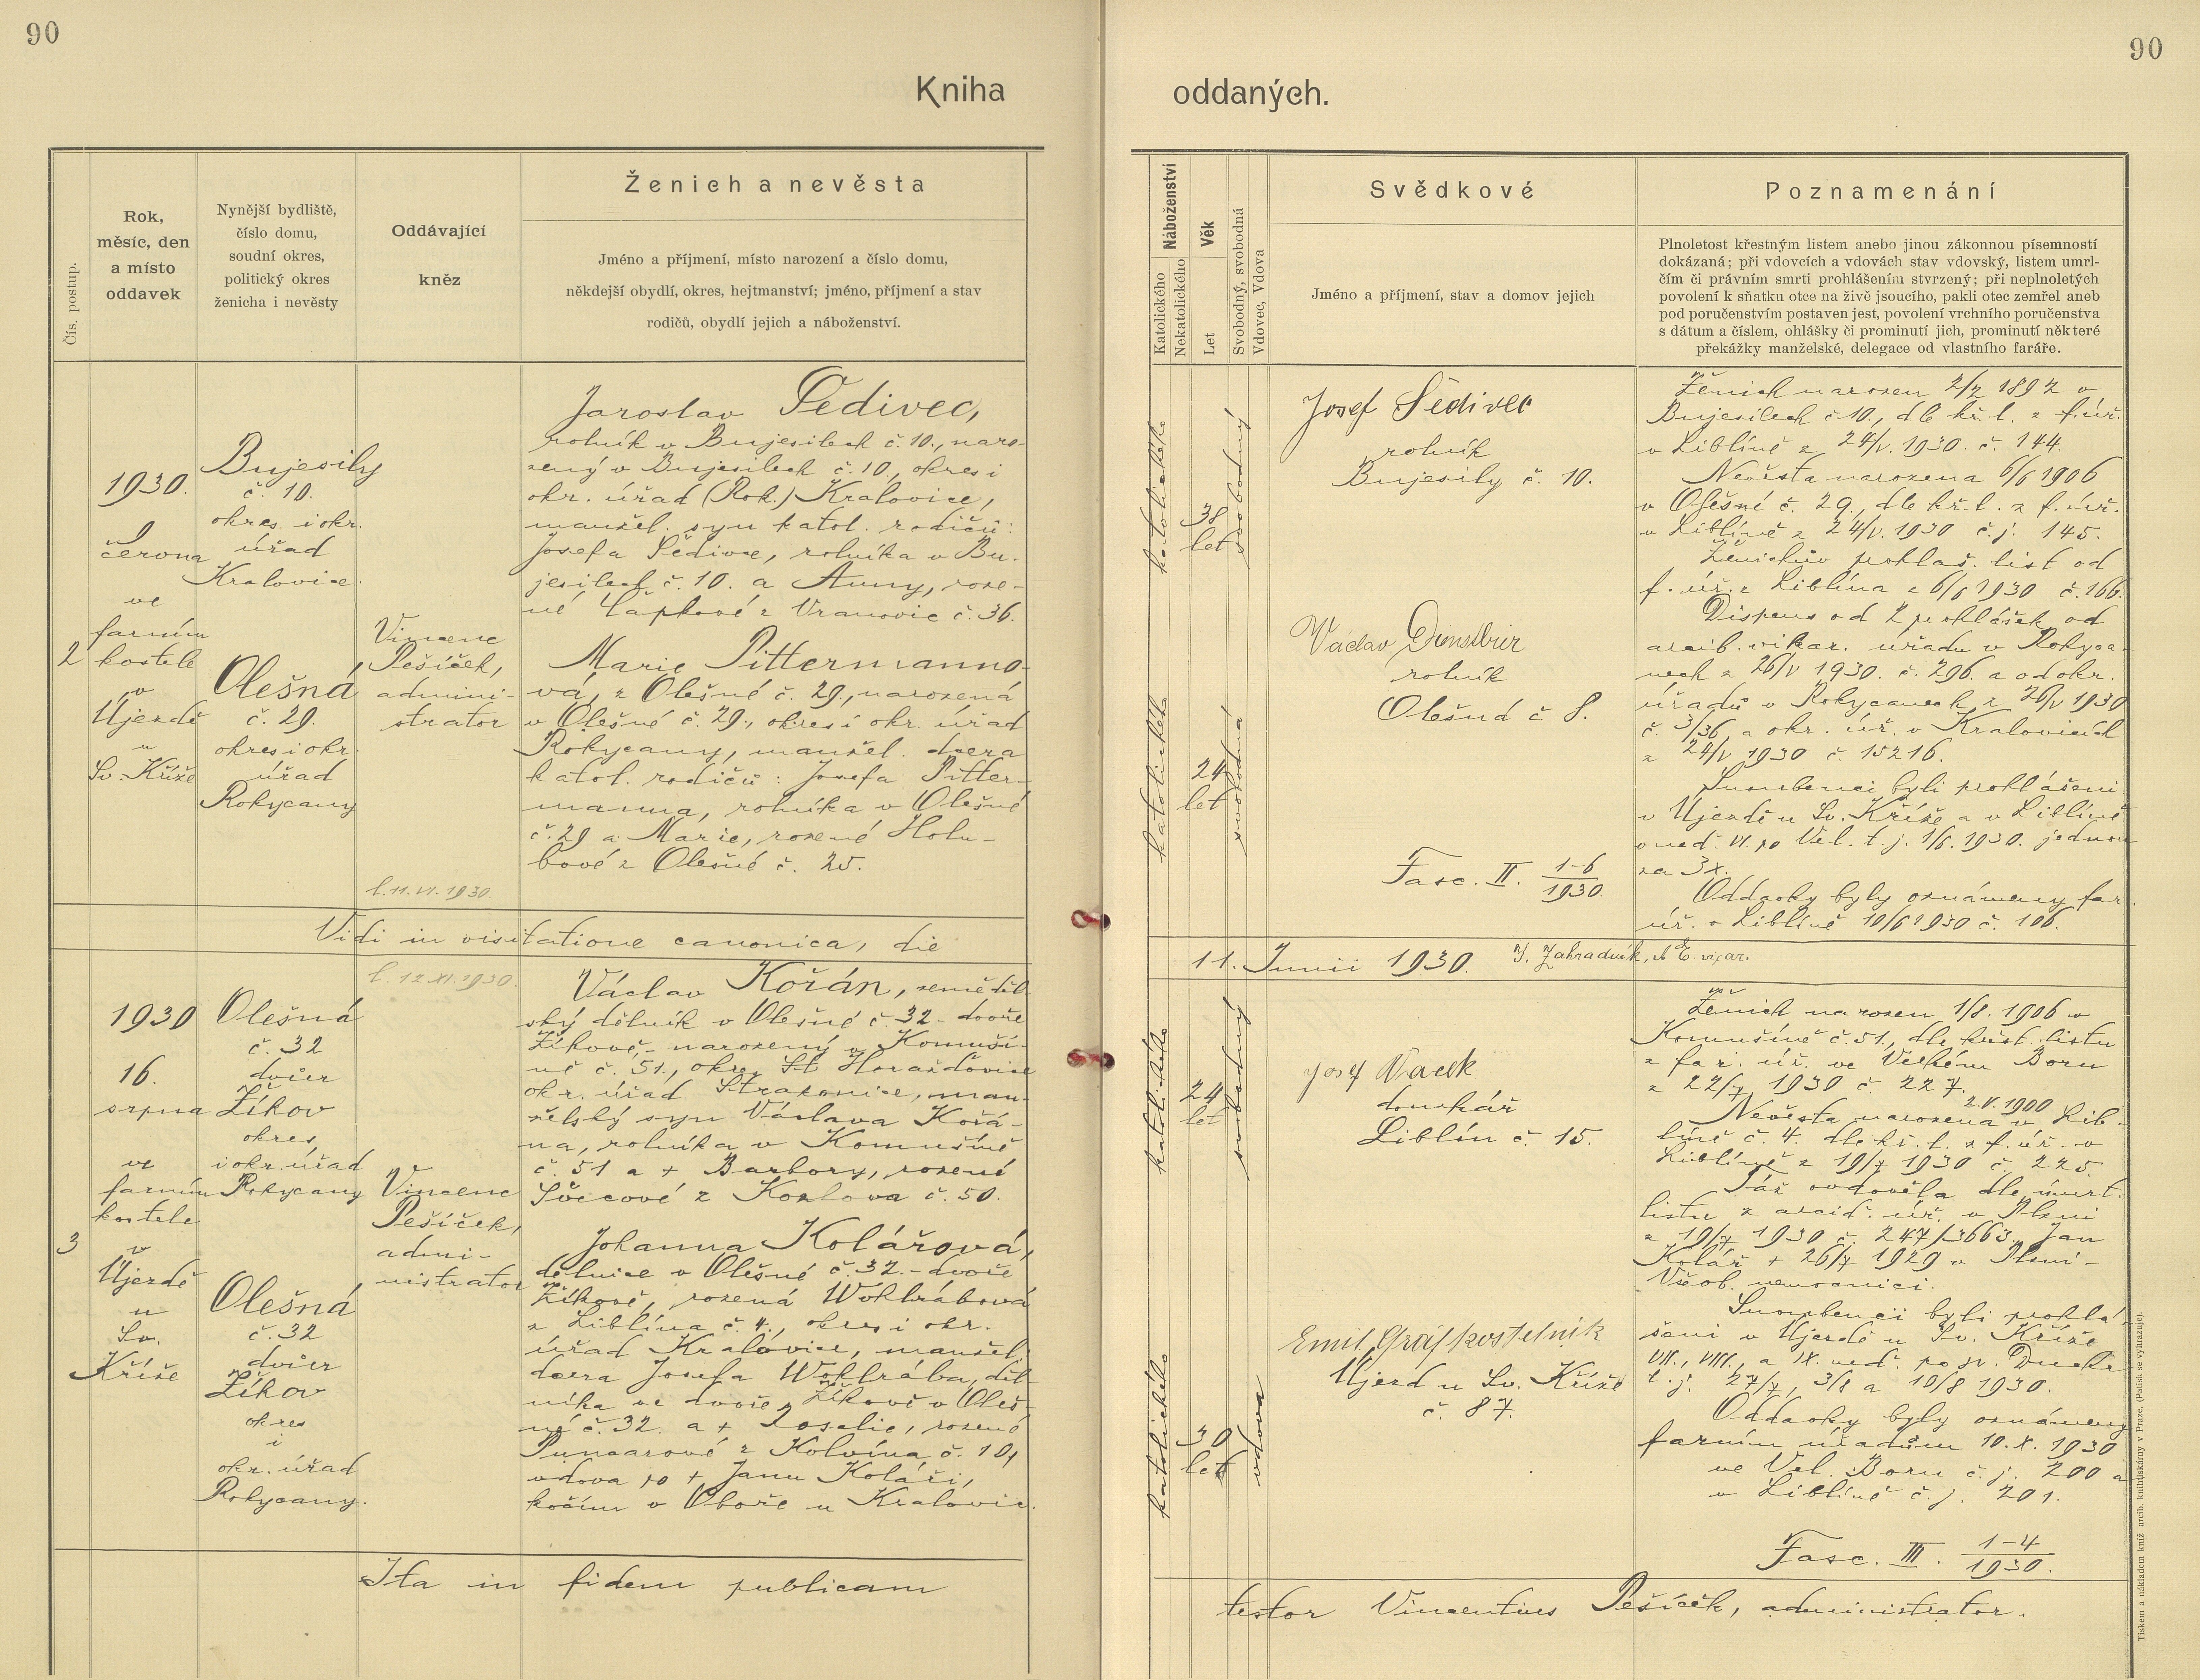 90
90
Kniha
oddaných.
Čís. postup.
Rok,
měsíc, den
a místo
oddavek
Nynější bydliště,
číslo domu,
soudní okres,
politický okres
ženicha i nevěsty
Oddávající
kněz
Ženich a nevěsta
Jméno a příjmení, místo narození a číslo domu,
někdejší obydlí, okres, hejtmanství; jméno, příjmení a stav
rodičů, obydlí jejich a náboženství.
Náboženství
Katolického
Nekatolického
Věk
Let
Svobodný, svobodná
Vdovec, Vdova
Svědkové
Jméno a příjmení, stav a domov jejich
Poznamenání
Plnoletost křestným listem anebo jinou zákonnou písemností
dokázaná; při vdovcích a vdovách stav vdovský, listem umrl-
čím či právním smrti prohlášením stvrzený; při neplnoletých
povolení k sňatku otce na živě jsoucího, pakli otec zemřel aneb
pod poručenstvím postaven jest, povolení vrchního poručenstva
s dátum a číslem, ohlášky či prominutí jich, prominutí některé
překážky manželské, delegace od vlastního faráře.
2
1930.
června
ve
farním
kostele
v
Újezdě
u
Sv. Kříže
Bujesily
č. 10.
okres i okr.
úřad
Kralovice.
Olešná,
č. 29.
okres i okr.
úřad
Rokycany
Vincenc
Pešíček,
admini-
strator
l. 11. VI. 1930.
Jaroslav Šedivec,
rolník v Bujesilech č. 10., naro-
zený v Bujesilech č. 10, okres i
okr. úřad (Rok.) Kralovice,
manžel. syn katol. rodičů:
Josefa Šedivce, rolníka v Bu-
jesilech č. 10. a Anny, roze-
né Čapkové z Vranovic č. 36.
Marie Pittermanno-
vá, z Olešné č. 29., narozená
v Olešné č. 29., okres i okr. úřad
Rokycany, manžel. dcera
katol. rodičů: Josefa Pitter-
manna, rolníka v Olešné
č. 29 a Marie, rozené Holu-
bové z Olešné č. 25.
katolického
38
let
svobodný
katolického
24
let
svobodná
Josef Šedivec
rolník
Bujesily č. 10.
Václav Dienstbier
rolník
Olešná č. 8.
Fasc. II. 1-6
1930.
Ženich narozen 2/2 1892 v
Bujesilech č. 10., dle kř. l. z f. úř.
v Liblíně z 24/V. 1930. č. 144.
Nevěsta narozena 6/6 1906
v Olešné č. 29., dle kř. l. z f. úř.
v Liblíně z 24/V. 1930 č. j. 145.
Ženichův prohlaš. list od
f. úř. z Liblína z 6/6 1930 č. 166.
Dispens od 2 prohlášek od
arcib. vikar. úřadu v Rokyca-
nech z 26/V 1930. č. 296. a od okr.
úřadu v Rokycanech z 26/V 1930
č. 3/36, a okr. úř. v Kralovicích
z 24/V 1930 č. 15216.
Snoubenci byli prohlášeni
v Újezdě u Sv. Kříže a v Liblíně
v ned. VI. po Vel. t. j. 1/6. 1930. jednou
za 3x.
Oddavky byly oznámeny far.
úř. v Liblíně 10/6 1930 č. 106.
Vidi in visitatione canonica, die
11. Junii 1930. J. Zahradník, vicar.
3
1930
16.
srpna
ve
farním
kostele
v
Újezdě
u
Sv.
Kříže
Olešná
č. 32
dvůr
Žíkov
okres,
i okr. úřad
Rokycany
Olešná,
č. 32
dvůr
Žíkov
okres
i
okr. úřad
Rokycany.
l. 12. XI. 1930.
Vincenc
Pešíček,
admi-
nistrator
Václav Kořán, zeměděl-
ský dělník v Olešné č. 32 - dvoře
Žíkově, - narozený v Komuší-
ně č. 51., okres St Horažďovice
okr. úřad Strakonice, man-
želský syn Václava Kořá-
na, rolníka v Komušíně
č. 51 a + Barbory, rozené
Švecové z Kozlova č. 50.
Johanna Kolářová,
dělnice v Olešné č. 32. - dvoře
Žíkově, rozená Wohlrábová
z Liblína č. 4., okres i okr.
úřad Kralovice, manžel.
dcera Josefa Wohlrába, děl-
níka ve dvoře Žíkově v Oleš-
né č. 32. a + Rosalie, rozené
Puncarové z Kolvína č. 10,
vdova po + Janu Koláři,
kočím v Oboře u Kralovic.
katolického
24
let
svobodný
katolického
30
let
vdova
Josef Vacek
Liblín č. 15.
Emil Gráf kostelník
Újezd u Sv. Kříže
č. 87.
Ženich narozen 1/8. 1906 v
Komušíně č. 51., dle křest. listu
z far. úř. ve Velkém Boru
z 22/7 1930 č. 227.
2.V. 1900
Nevěsta narozena v Lib-
líně č. 4. dle kř. l. z f. úř. v
Liblíně z 19/7 1930 č. 225.
Táž ovdověla dle úmrt.
listu z arcid. úř. v Plzni
z 19/7 1930 č. 247/3663. Jan
Kolář + 26/7 1929 v Plzni -
Všeob. nemocnici.
Snoubenci byli prohlá-
šeni v Újezdě u Sv. Kříže
VII., VIII., a IX. ned. po sv. Duchu
t. j. 27/7, 3/8 a 10/8 1930.
Oddavky byly oznámeny
farním úřadům 10. X. 1930
ve Vel. Boru č. j. 200 a
v Liblíně č. j. 201.
Fasc. III. 1-4
1930.
Ita in fidem publicam
testor Vincentius Pešíček, administrator.
Tiskem a nákladem kníž. arcib. knihtiskárny v Praze. (Patisk se vyhrazuje).